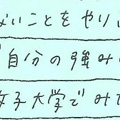 ないことをやりし
自分の強み
女子大学でみて